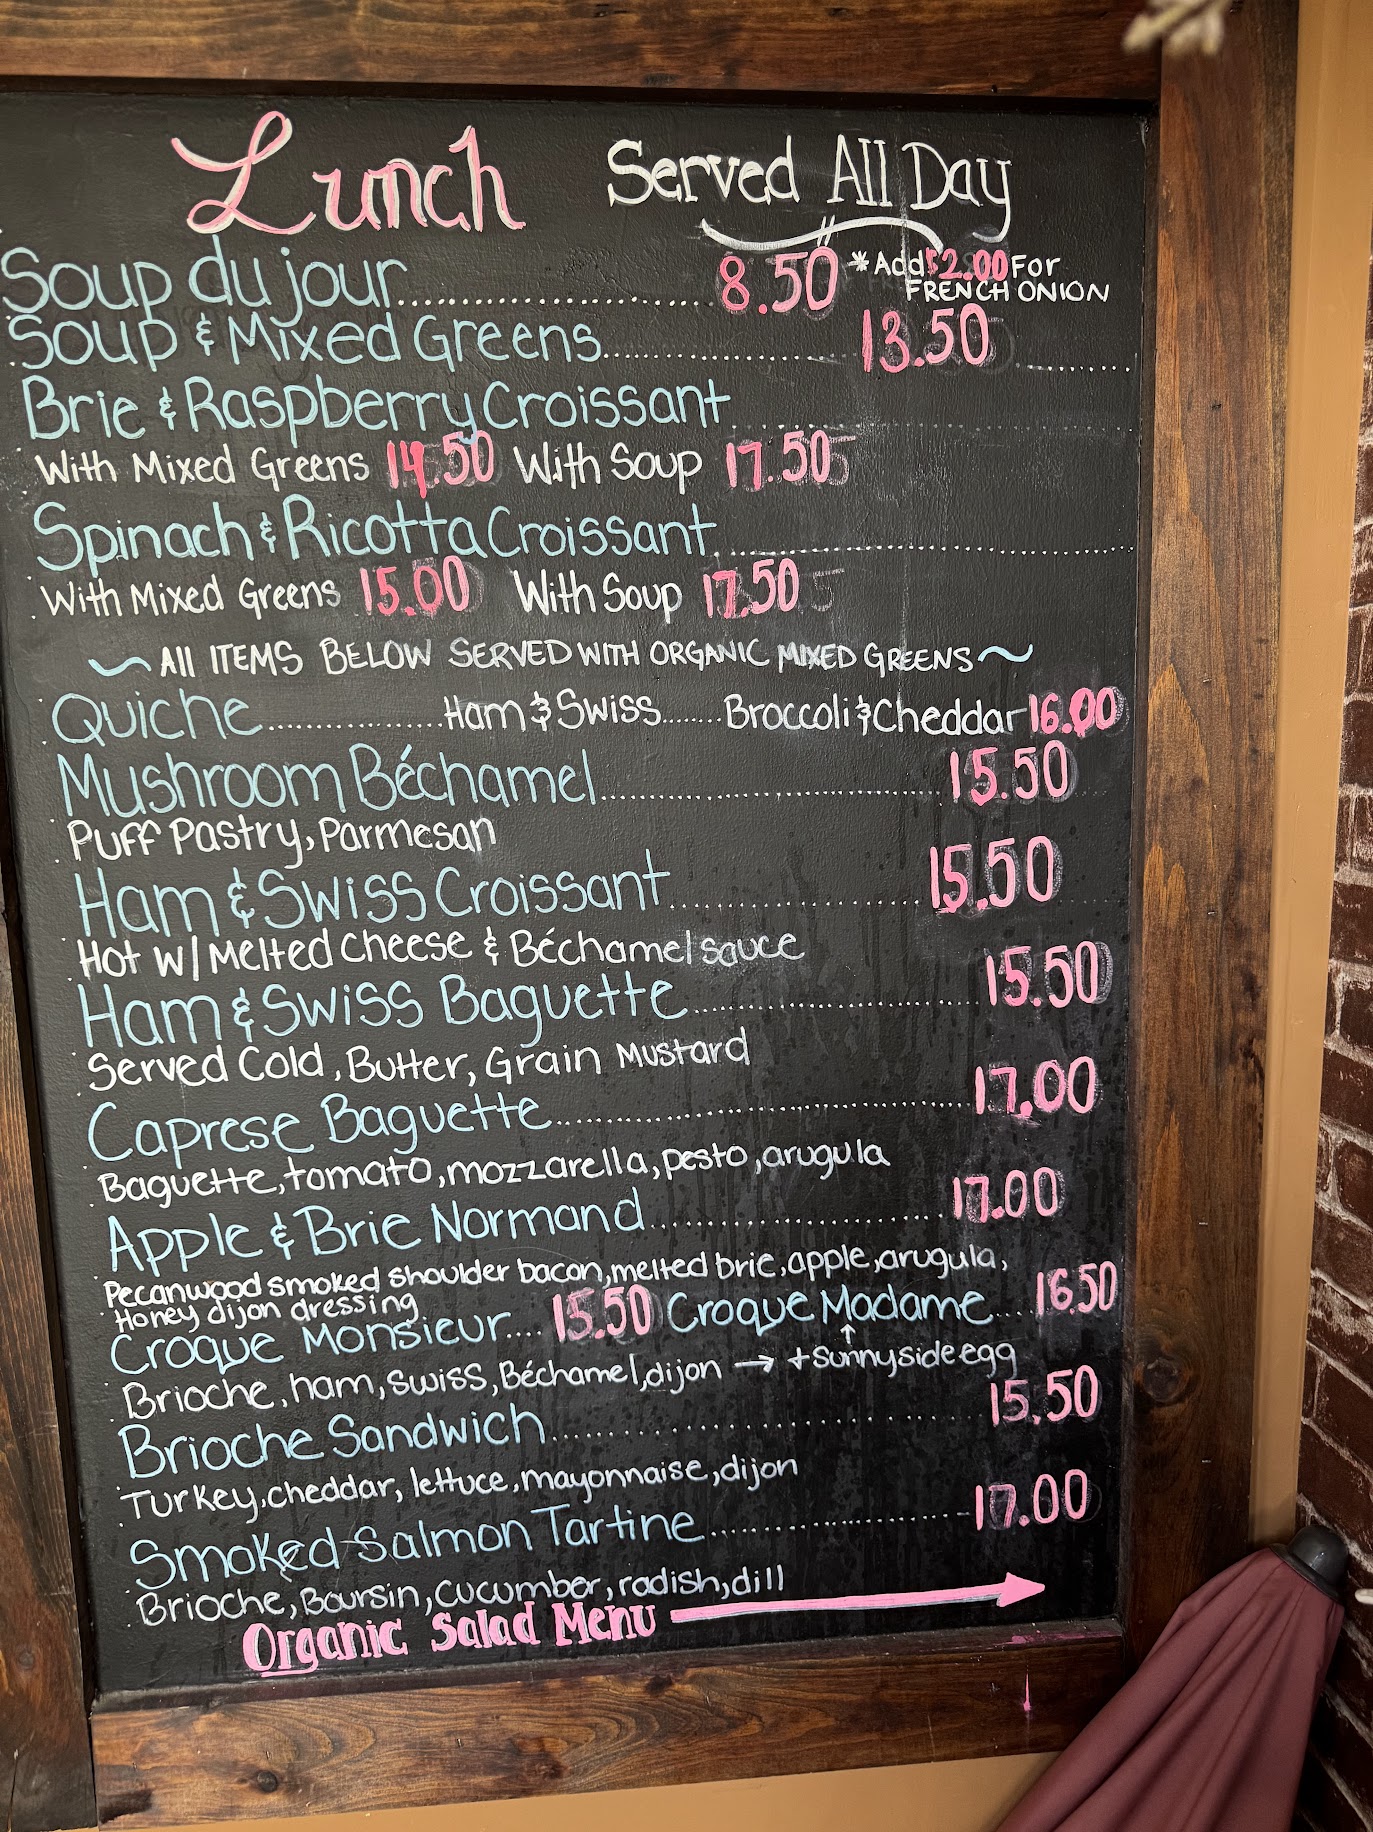 Lunch Served All Day
Soup du jour 8.50 *Add $2.00 For
FRENCH ONION
Soup & Mixed Greens 13.50
Brie & Raspberry Croissant
With Mixed Greens 14.50 With Soup 17.50
Spinach & Ricotta Croissant
With Mixed Greens 15.00 With Soup 17.50
All ITEMS BELOW SERVED WITH ORGANIC MIXED GREENS
Quiche Ham & Swiss Broccoli & Cheddar 16.00
Mushroom Béchamel 15.50
Puff Pastry, Parmesan
Ham & Swiss Croissant 15.50
Hot w/ Melted Cheese & Béchamel sauce
Ham & Swiss Baguette 15.50
Served Cold, Butter, Grain Mustard
Caprese Baguette 17.00
Baguette, tomato, mozzarella, pesto, arugula
Apple & Brie Normand 17.00
Pecanwood smoked shoulder bacon, melted brie, apple, arugula,
Honey dijon dressing
Croque Monsieur 15.50 Croque Madame 16.50
Brioche, ham, swiss, Béchamel, dijon → + sunnyside egg
Brioche Sandwich 15.50
Turkey, cheddar, lettuce, mayonnaise, dijon
Smoked Salmon Tartine 17.00
Brioche, Boursin, cucumber, radish, dill
Organic Salad Menu